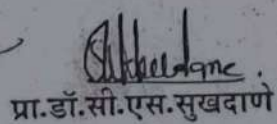 प्रा.डॉ.सी.एस.सुखदाणे